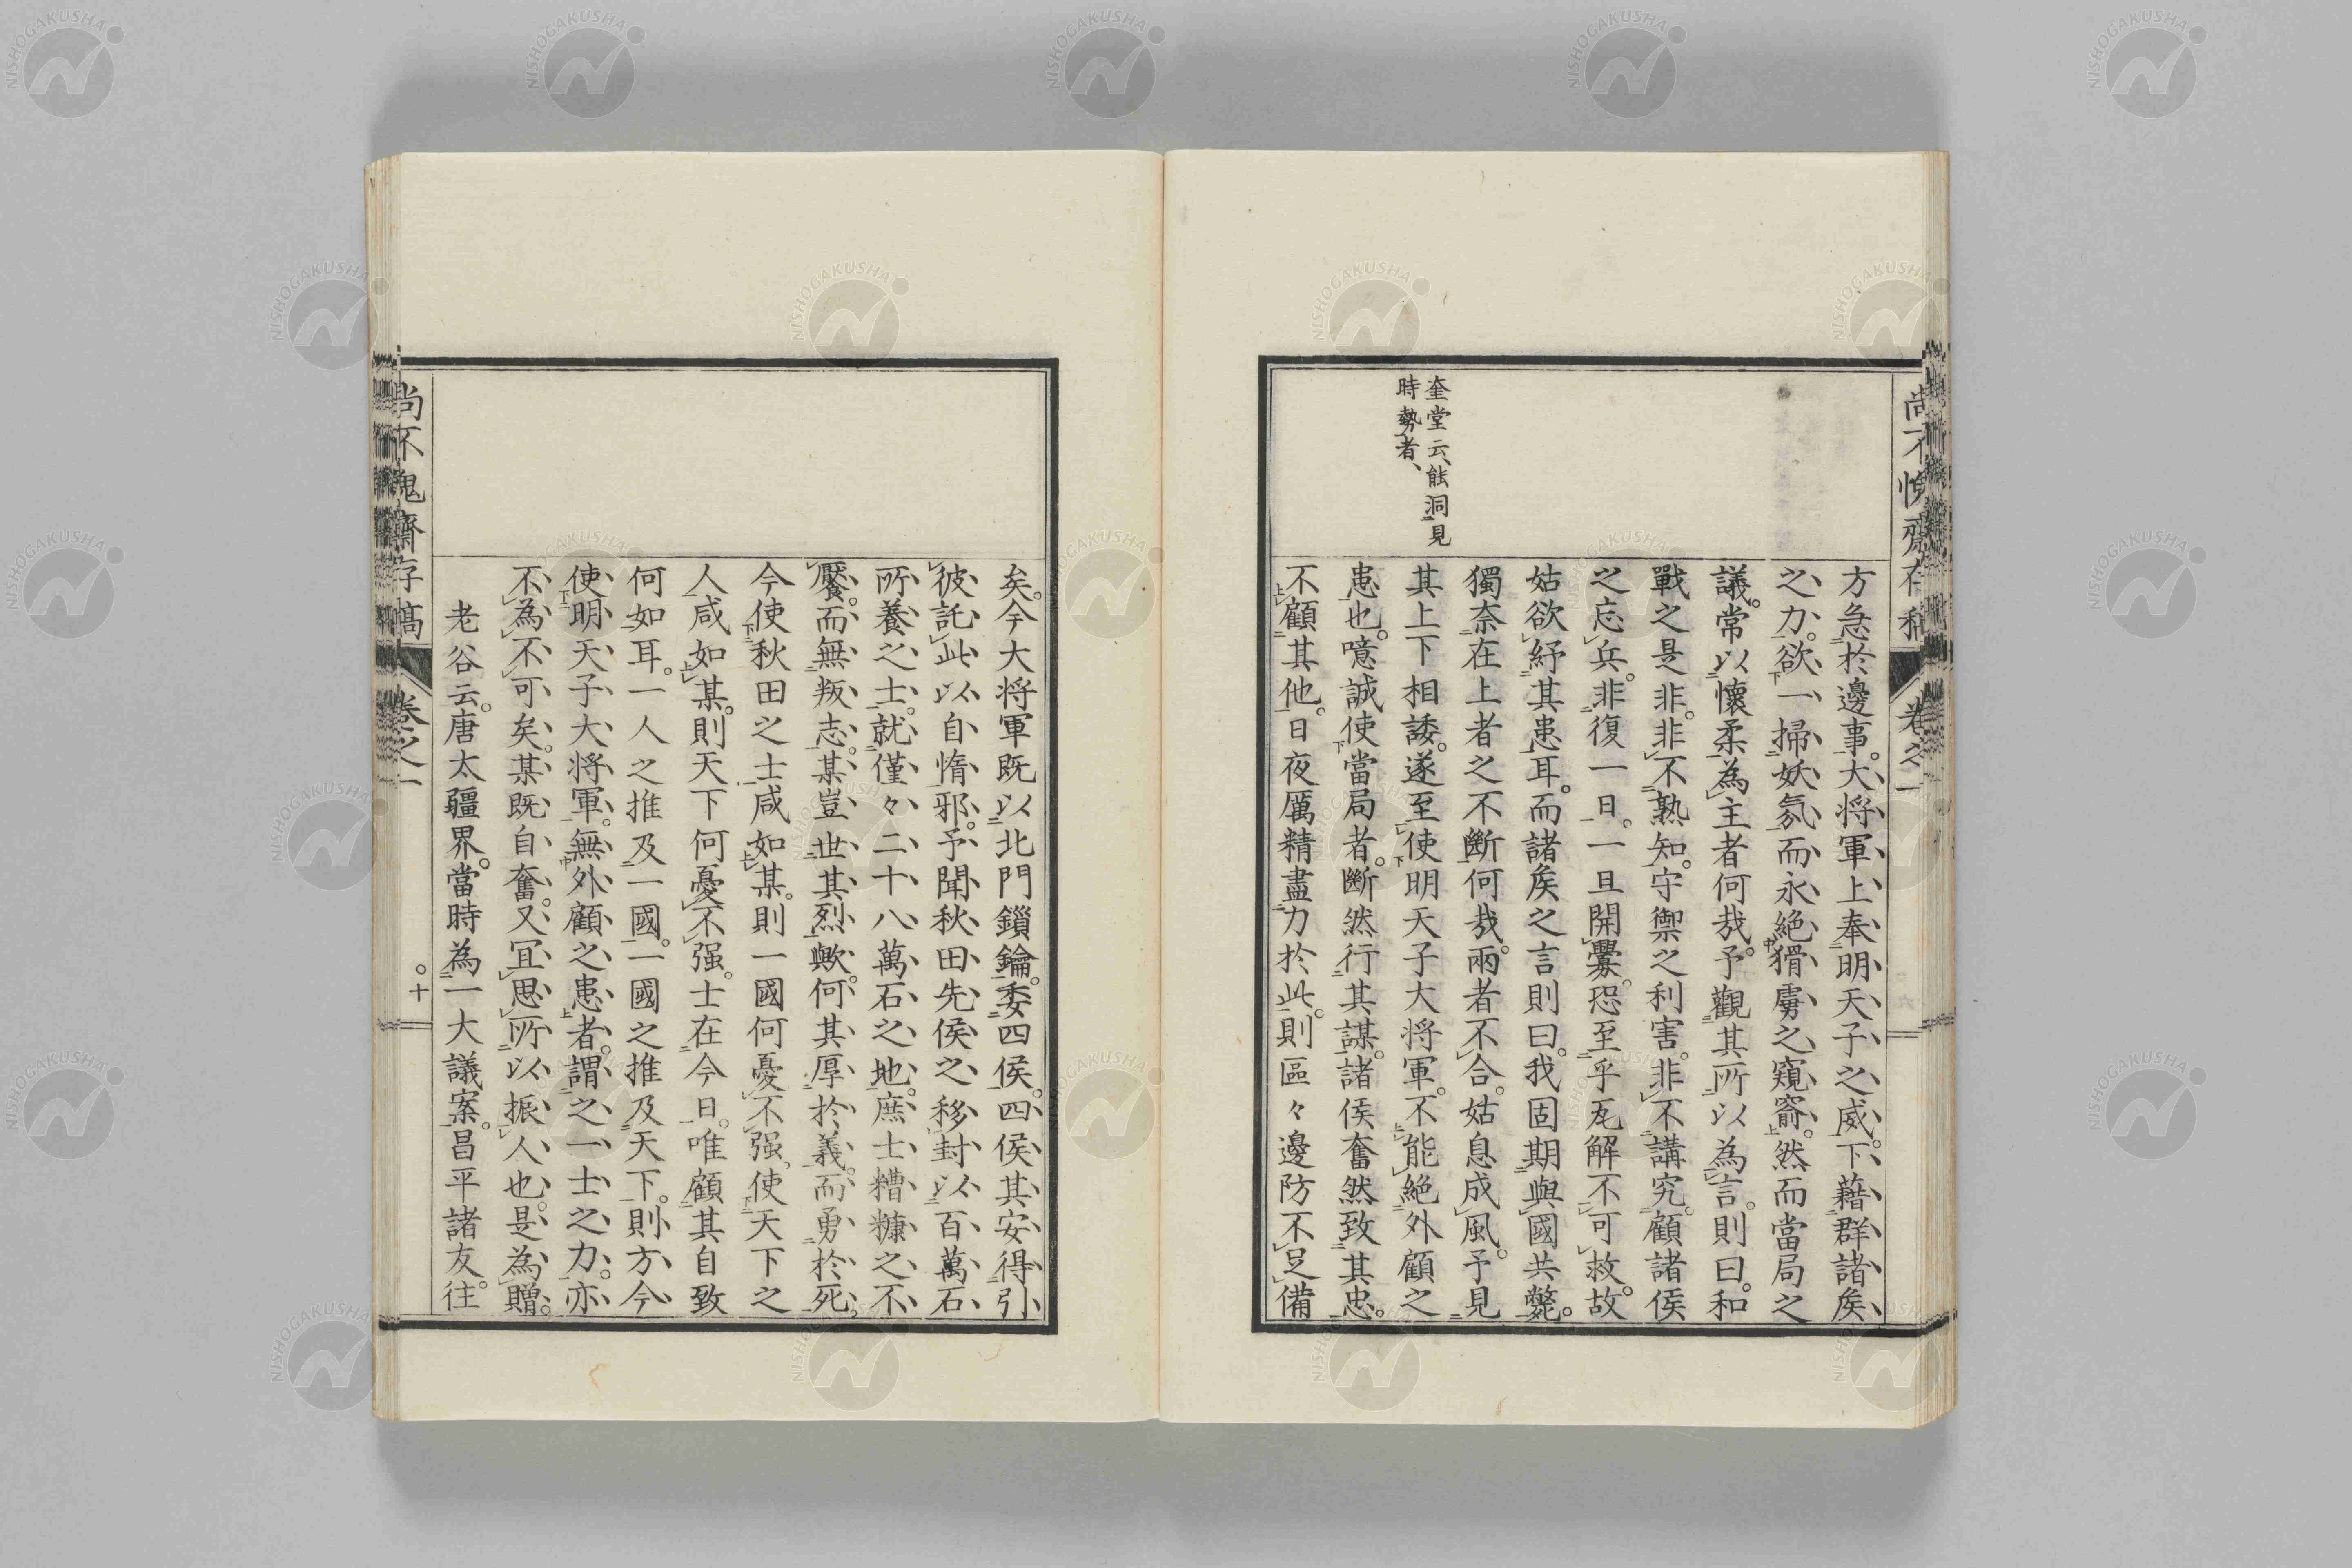 尚不愧齋存稿 卷之一
奎堂云、能洞見
時勢者、
方急於邊事。大將軍上奉明天子之威。下藉群諸矦
之力。欲一掃妖氛而永絶猾虜之窺窬。然而當局之
議。常以懷柔為主者何哉。予觀其所以為言。則曰。和
戰之是非。非不熟知。守禦之利害。非不講究。顧諸侯
之忘兵。非復一日。一旦開釁。恐至乎瓦解不可救。故
姑欲紓其患耳。而諸矦之言則曰。我固期與國共斃。
獨奈在上者之不斷何哉。兩者不合。姑息成風。予見
其上下相諉。遂至使明天子大將軍。不能絶外顧之
患也。噫誠使當局者。斷然行其謀。諸侯奮然致其忠。
不顧其他。日夜厲精盡力於此。則區々邊防不足備
矣。今大将軍既以北門鎖鑰。委四侯。四侯其安得引
彼託此以自惰邪。予聞秋田先侯之移封以百萬石
所養之士。就僅々二十八萬石之地。庶士糟糠之不
饜。而無叛志。某豈世其烈歟。何其厚於義。而勇於死。
今使秋田之士咸如某。則一國何憂不强。使天下之
人咸如某。則天下何憂不强。士在今日。唯顧其自致
何如耳。一人之推及一國。一國之推及天下。則方今
使明天子大将軍。無外顧之患者。謂之一士之力。亦
不為不可矣。某既自奮。又冝思所以振人也。是為贈。
老谷云。唐太疆界。當時為一大議案。昌平諸友往
尚不愧齋存稿 卷之一 〇十